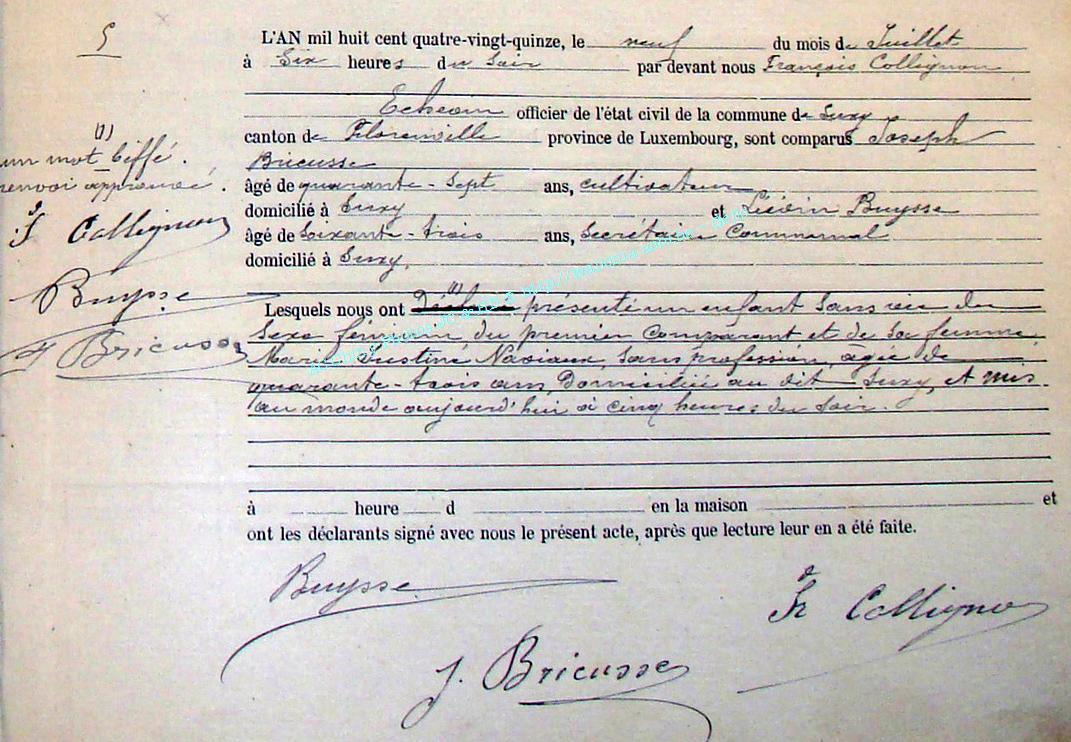 5
L'AN mil huit cent quatre-vingt-quinze, le neuf du mois de Juillet
à Six heures du Soir par devant nous François Collignon
Echevin officier de l'état civil de la commune de Suxy
canton de Florenville province de Luxembourg, sont comparus Joseph
Bricusse
âgé de quarante-Sept ans, cultivateur
domicilié à Suxy et Liévin Buysse
âgé de Soixante-trois ans, Secrétaire Communal
domicilié à Suxy,
Lesquels nous ont Déclaré (1) présenté un enfant Sans vie du
Sexe féminin du premier Comparant et de Sa femme
Marie Justine Naviaux, Sans profession, agée de
quarante-trois ans Domiciliée au dit Suxy, et mis
au monde aujourd'hui à cinq heures du Soir.
à heure d en la maison et
ont les déclarants signé avec nous le présent acte, après que lecture leur en a été faite.
(1)
un mot biffé.
renvoi approuvé.
F Collignon
Buysse
J Bricusse
Buysse
Fr Collignon
J. Bricusse